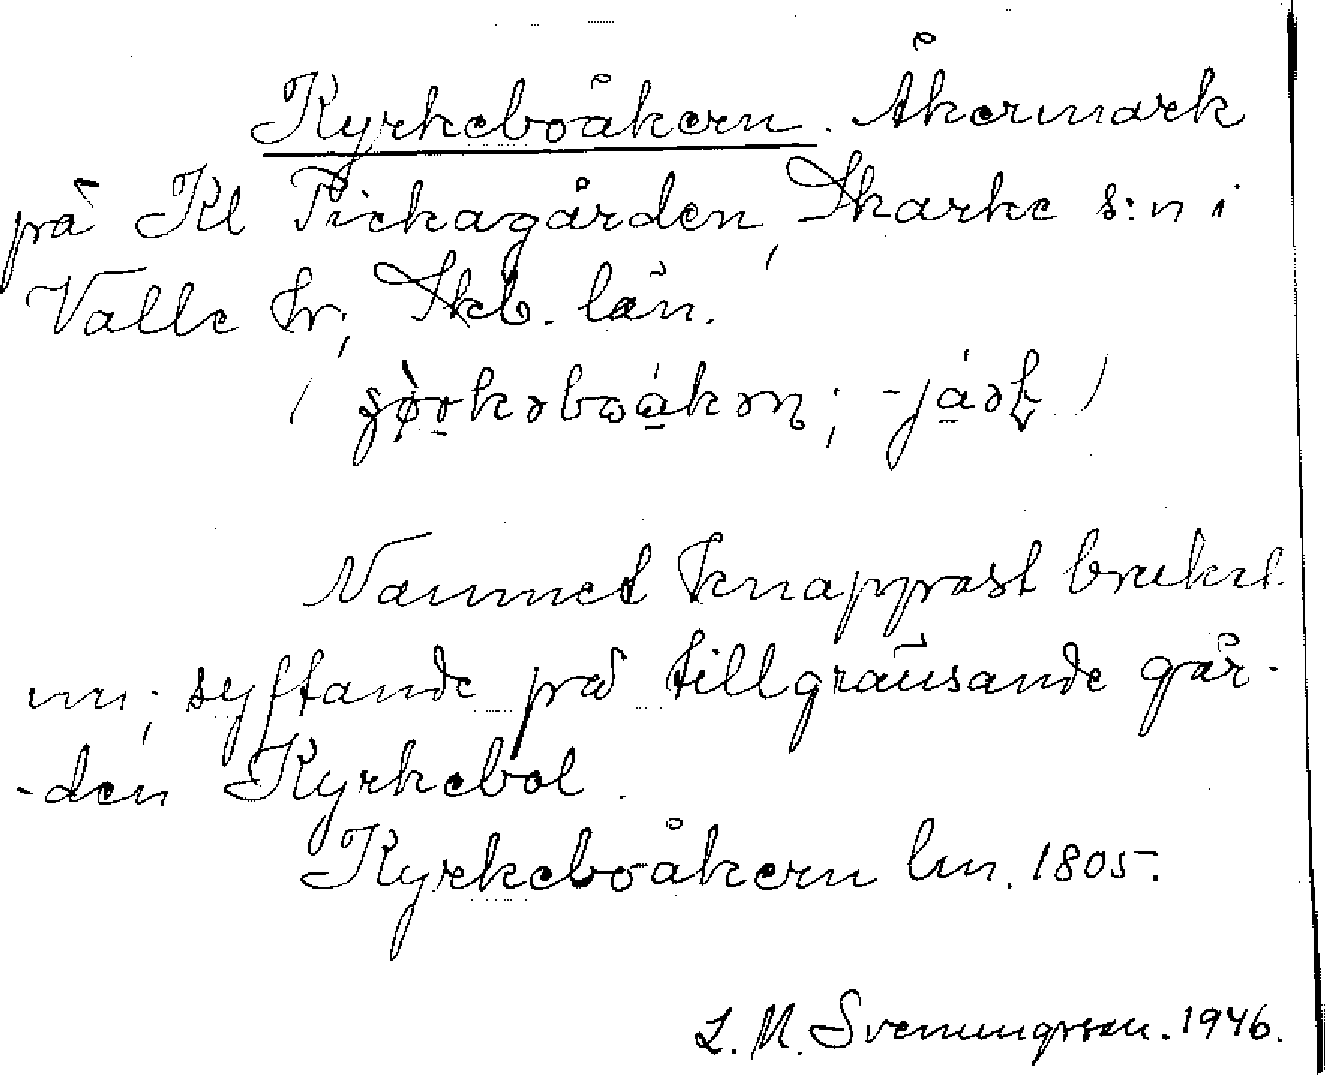 Kyrkeboåkern. Åkermark
på Kl Pickagården, Skarke s:n i
Valle hr, Skb. län.
Namnet knappast brukat
nu; syftande på tillgränsande går-
-den Kyrkebol.
Kyrkeboåkern lm. 1805.
L. M. Svenungsson. 1946.